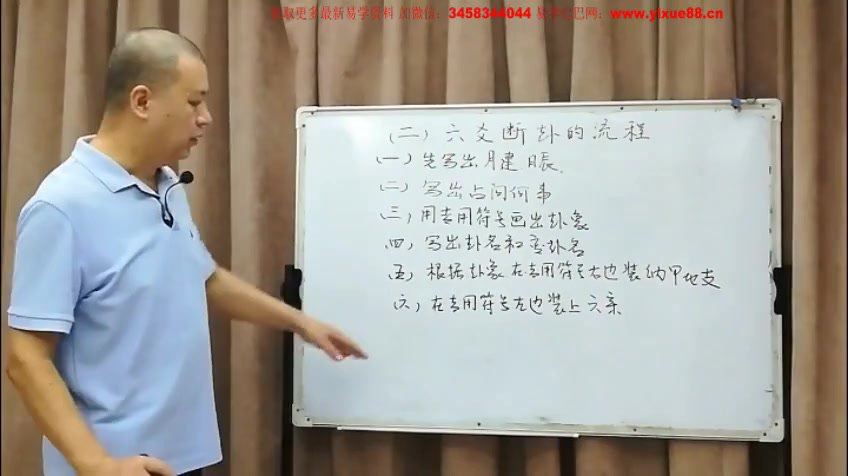 取更多最新易学资料 加微信：3458344044 易学 巴网：www.yixue88.cn
(二) 六爻断卦的流程
(一) 先写出月建日辰.
(二) 写出占问何事
(三) 用专用符号画出卦象
四) 写出卦名和变卦名
五) 根据卦象在专用符号右边装纳甲地支
六) 在专用符号左边装上六亲